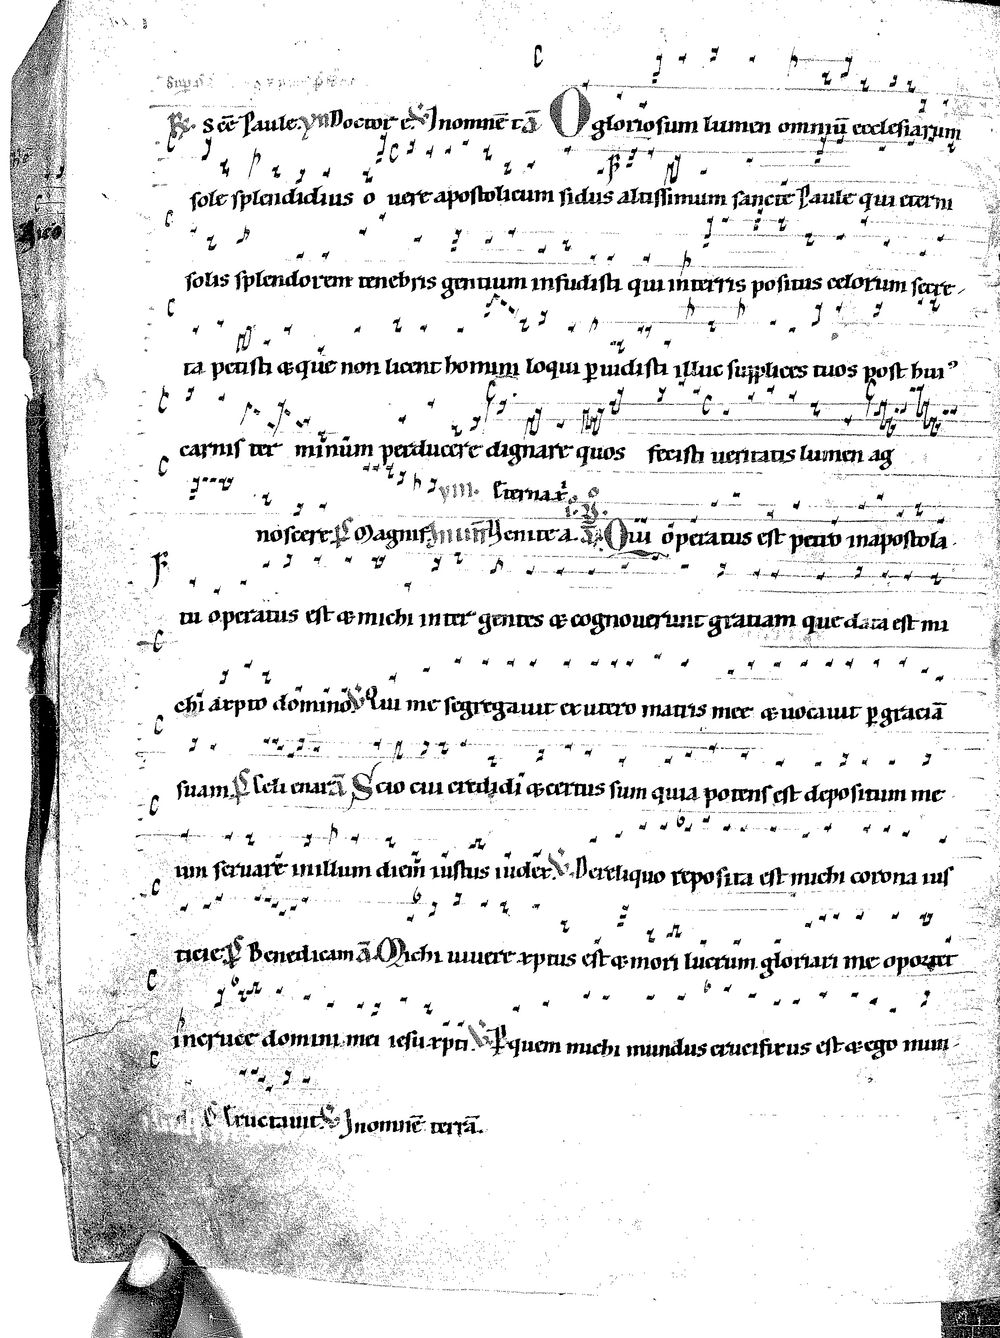 R. Sce Paule. yn Doctor e. V. Inomnē t. ā O gloriosum lumen omniū ecclesiarum
sole splendidius o vere apostolicum sidus altissimum sancte Paule qui eterni
solis splendorem tenebris gentium infudisti qui interris positus celorum secre
ta petisti & que non licent homini loqui p uidisti illuc supplices tuos post hui⁹
carnis ter minum perducere dignare quos fecisti ueritatis lumen ag
VIII. Eterna
noscere. Ps Magnif. Inuit. Uenite a. ā Qui operatus est petro inapostola
tu operatus est & michi inter gentes & cognouerunt gratiam que data est mi
chi axpto domino V Qui me segregauit exutero matris mee & uocauit p graciā
suam. Ps Celi enar. ā Scio cui credidi & certus sum quia potens est depositum me
um seruare inillum diem iustus iudex. V. Dereliquo reposita est michi corona ius
ticie. Ps Benedicam ā Michi uiuere xptus est & mori lucrum gloriari me oportet
incruce domini mei iesu xpti V P quem michi mundus crucifixus est & ego mun
d. Ps Eructauit. V Inomnē terrā.